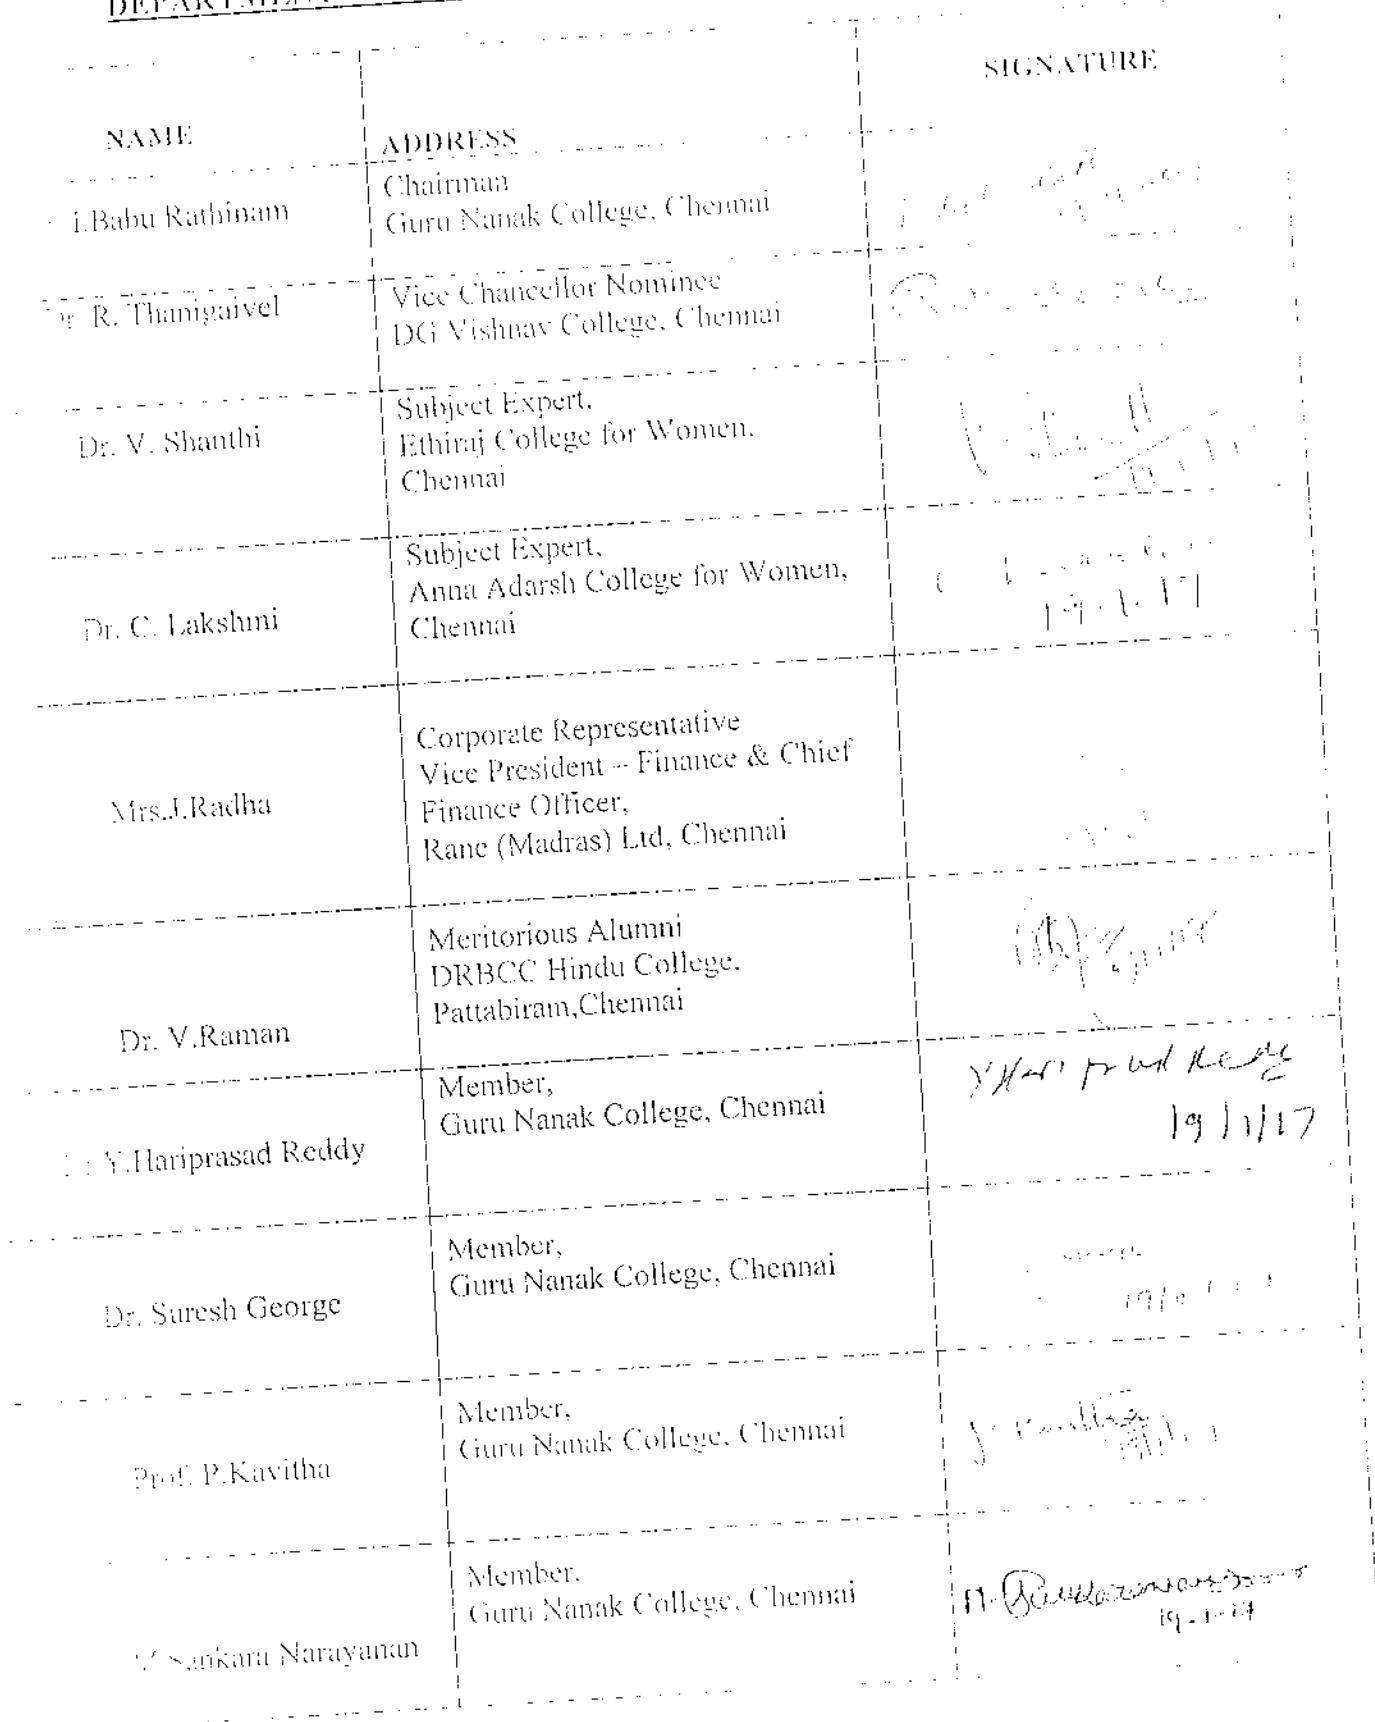 NAME
ADDRESS
SIGNATURE
i.Babu Rathinam
Chairman
Guru Nanak College, Chennai
Dr. R. Thanigaivel
Vice Chancellor Nominee
DG Vishnav College, Chennai
Dr. V. Shanthi
Subject Expert,
Ethiraj College for Women,
Chennai
Dr. C. Lakshmi
Subject Expert,
Anna Adarsh College for Women,
Chennai
19.1.17
Mrs.J.Radha
Corporate Representative
Vice President – Finance & Chief
Finance Officer,
Rane (Madras) Ltd, Chennai
Dr. V.Raman
Meritorious Alumni
DRBCC Hindu College,
Pattabiram,Chennai
Y.Hariprasad Reddy
Member,
Guru Nanak College, Chennai
Y Hari prasad Reddy
19/1/17
Dr. Suresh George
Member,
Guru Nanak College, Chennai
Prof. P.Kavitha
Member,
Guru Nanak College, Chennai
Sankara Narayanan
Member,
Guru Nanak College, Chennai
19-1-17